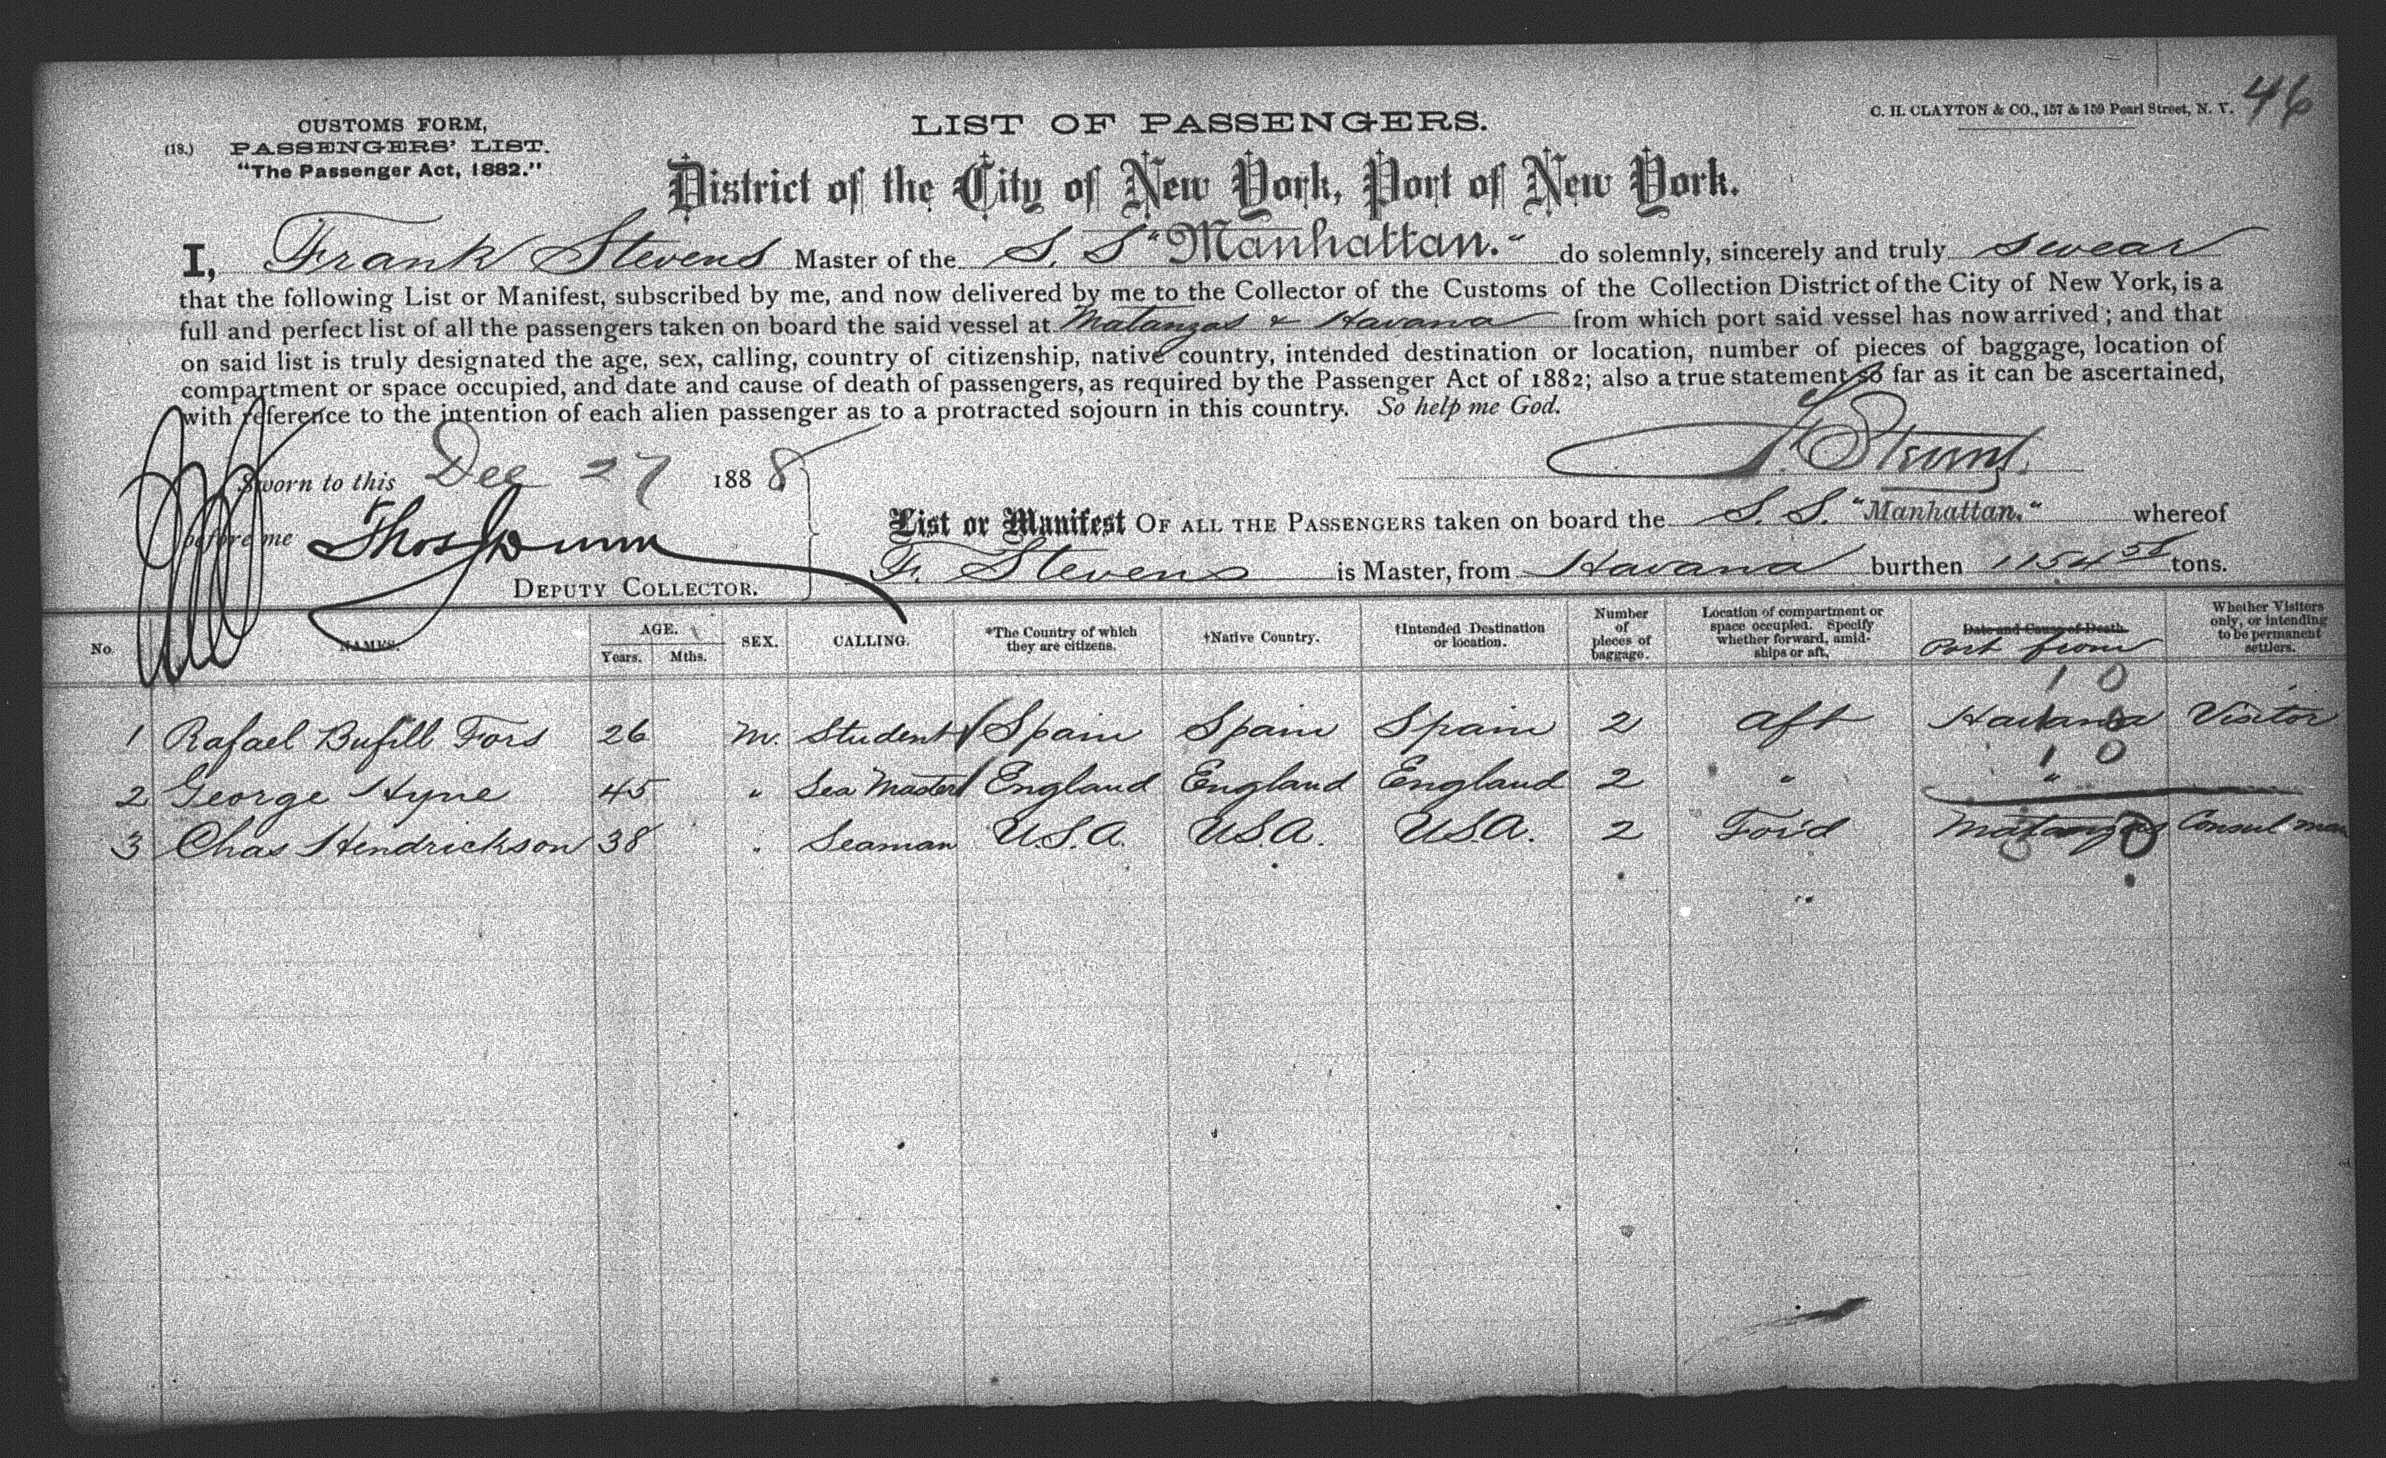 46
C. H. CLAYTON & CO., 157 & 159 Pearl Street, N. Y.
CUSTOMS FORM,
(18.) PASSENGERS' LIST.
"The Passenger Act, 1882."
LIST OF PASSENGERS.
District of the City of New York, Port of New York.
I, Frank Stevens Master of the S. S "Manhattan." do solemnly, sincerely and truly swear
that the following List or Manifest, subscribed by me, and now delivered by me to the Collector of the Customs of the Collection District of the City of New York, is a
full and perfect list of all the passengers taken on board the said vessel at Matanzas & Havana from which port said vessel has now arrived; and that
on said list is truly designated the age, sex, calling, country of citizenship, native country, intended destination or location, number of pieces of baggage, location of
compartment or space occupied, and date and cause of death of passengers, as required by the Passenger Act of 1882; also a true statement so far as it can be ascertained,
with reference to the intention of each alien passenger as to a protracted sojourn in this country. So help me God.
Sworn to this Dec 27 1888
before me Thos
DEPUTY COLLECTOR.
F. Stevens
List or Manifest OF ALL THE PASSENGERS taken on board the S. S. "Manhattan." whereof
F. Stevens is Master, from Havana burthen 1154 58 tons.
No. NAMES. AGE. Years. Mths. SEX. CALLING. *The Country of which they are citizens. †Native Country. †Intended Destination or location. Number of pieces of baggage. Location of compartment or space occupied. Specify whether forward, amidships or aft. Date and Cause of Death. Port from Whether Visitors only, or intending to be permanent settlers.
10
1 Rafael Bufill Fors 26 M. Student Spain Spain Spain 2 aft Havana Visitor
10
2 George Hyne 45 " Sea Master England England England 2 " "
3 Chas Hendrickson 38 " Seaman U.S.A. U.S.A. U.S.A. 2 For'd Matanzas Consul man